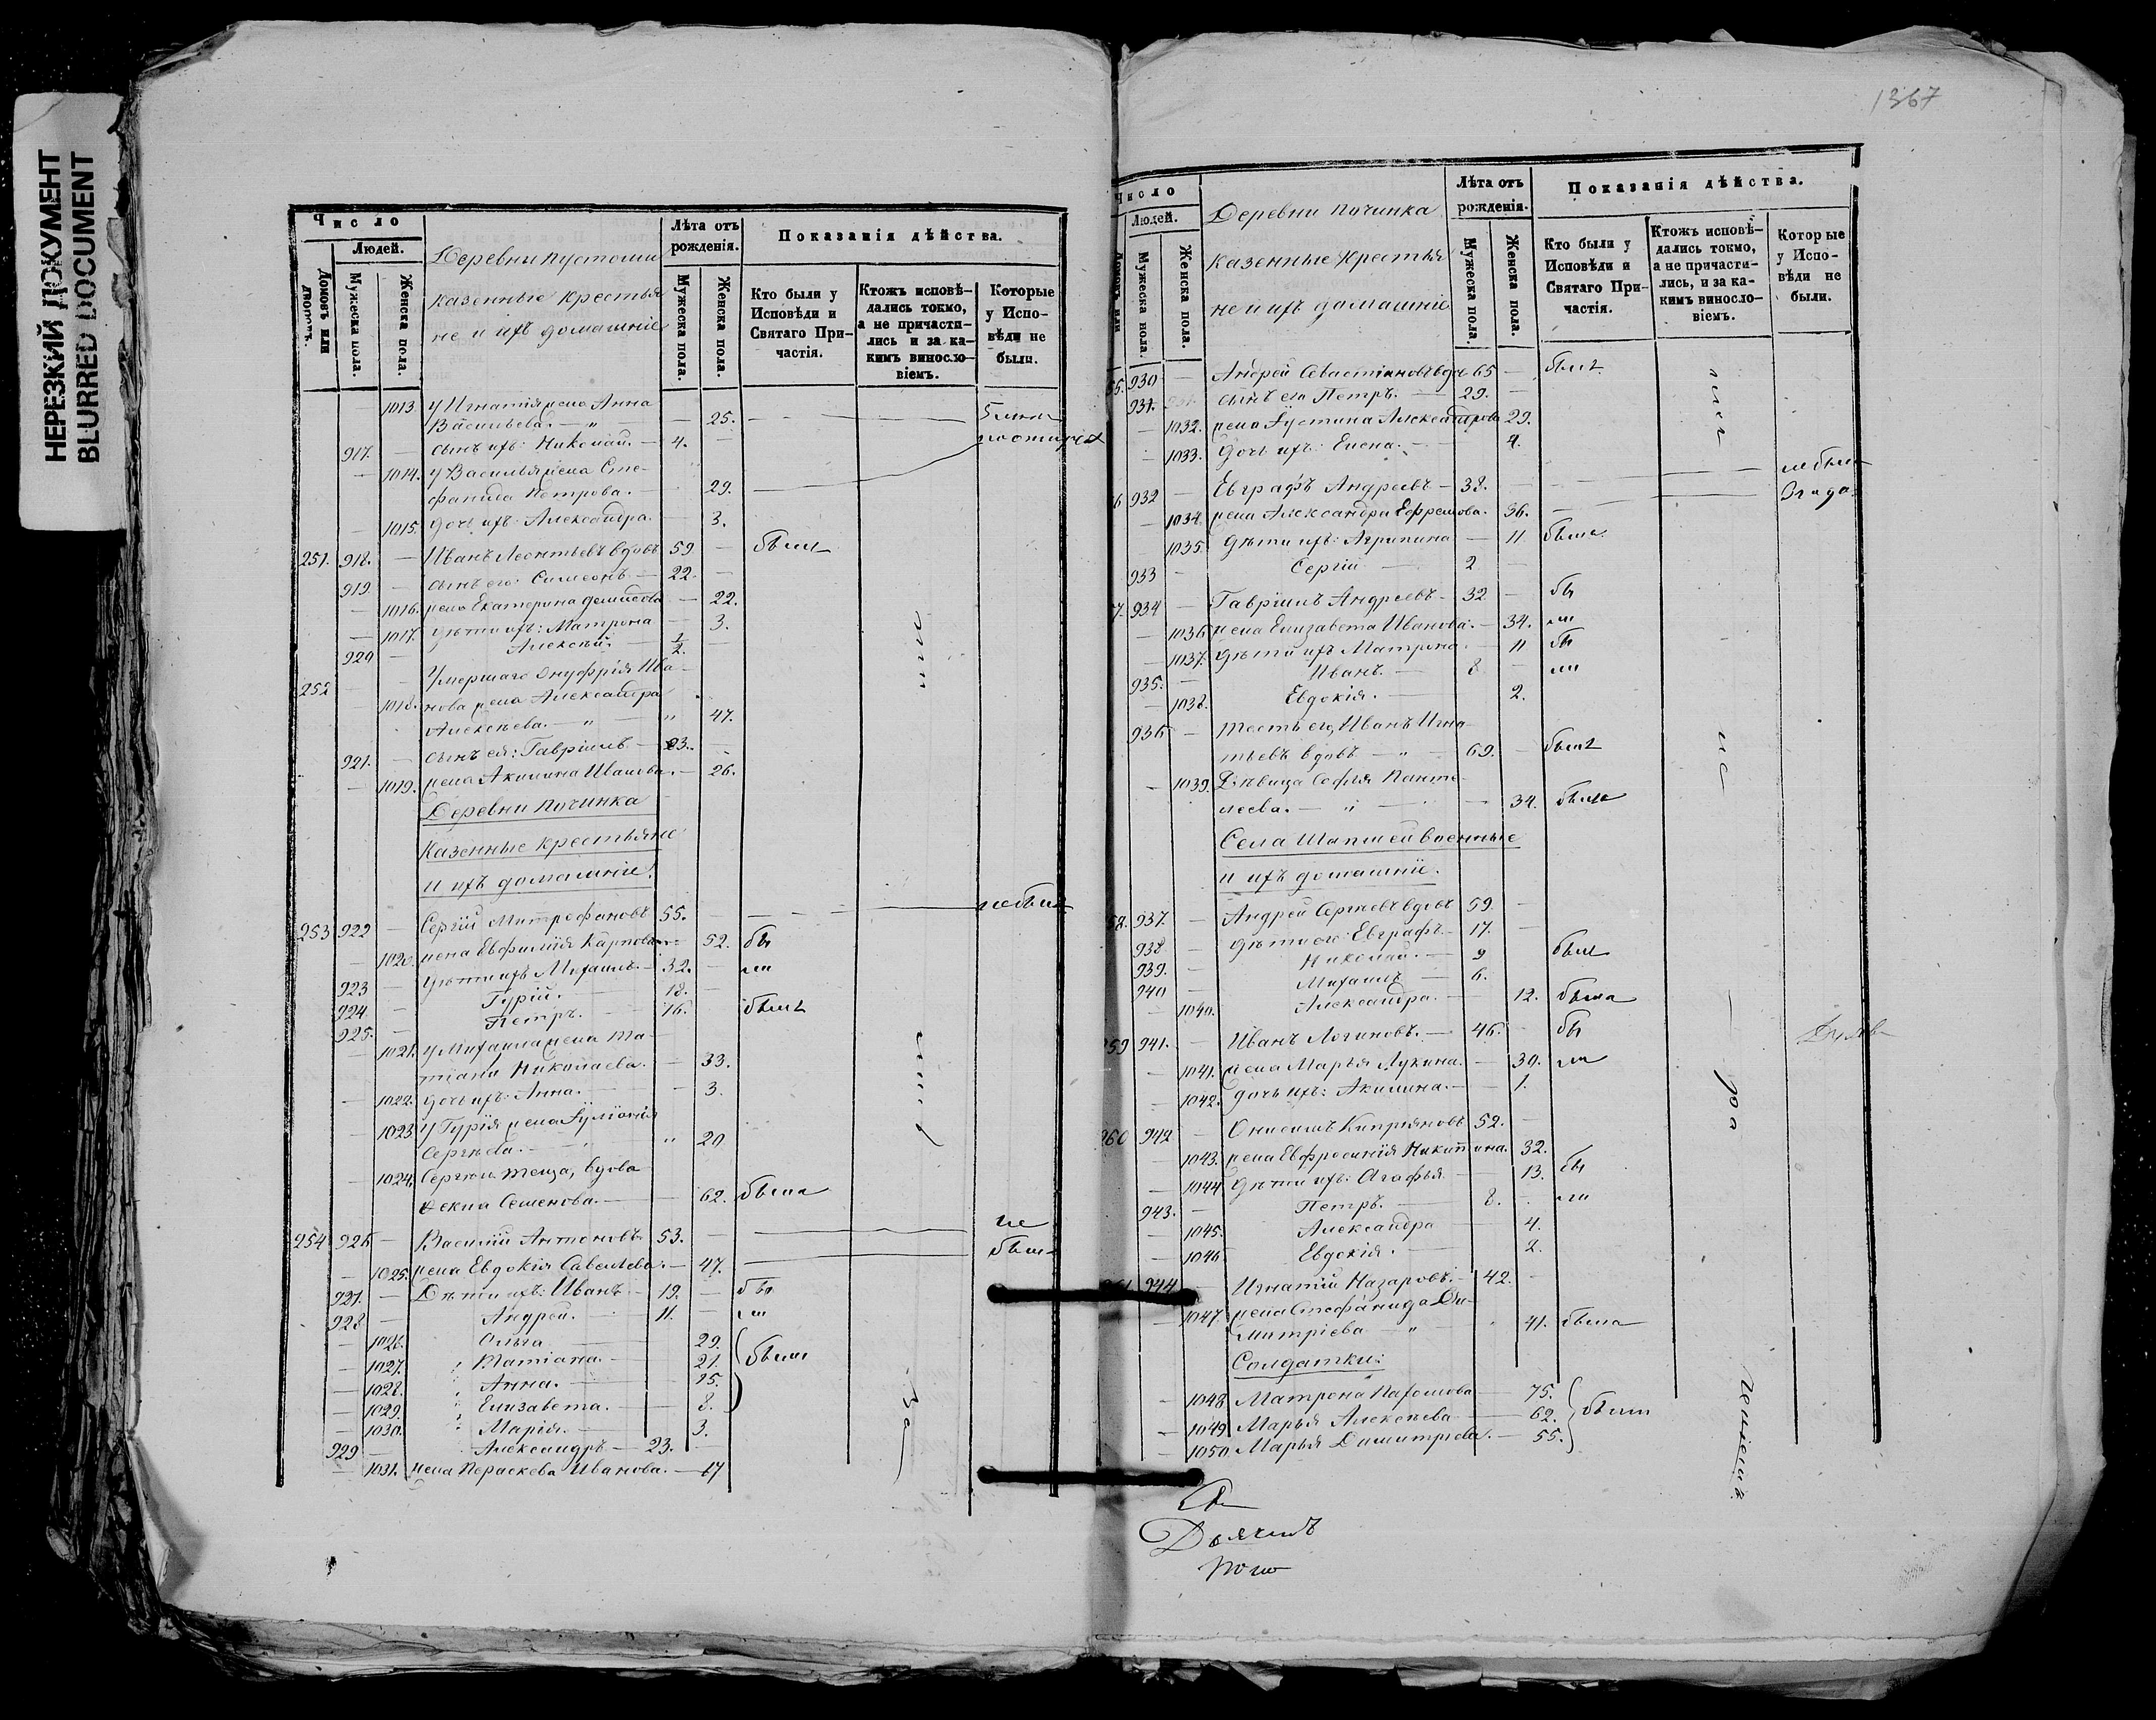 НЕРЕЗКИЙ ДОКУМЕНТ
BLURRED DOCUMENT
Число
Людей.
Домовъ или дворовъ.
Мужеска пола.
Женска пола.
Деревни Пустоши
казенные крестья
не и ихъ домашніе
Лѣта отъ рожденія.
Мужеска пола.
Женска пола.
Показанія дѣйства.
Кто были у Исповѣди и Святаго Причастія.
Ктожъ исповѣдались токмо, а не причастились и за какимъ винословіемъ.
Которые у Исповѣди не были.
1013. У Игнатія жена Анна
Васильева. — " — 25.
917. — сынъ ихъ: Николай. — 4. —
— 1014. У Василья жена Сте-
фанида Петрова. — 29.
— 1015. дочь ихъ: Александра. — 3.
251. 918. — Иванъ Леонтьевъ вдовъ 59 — были
919 — сынъ его: Симеонъ — 22. —
— 1016. жена Екатерина — 22.
— 1017. дѣти ихъ: Матрона — 3.
920 — Алексѣй. — 1/2. —
252 — — Умершаго Онуфрія Ива-
— 1018. нова жена Александра
Алексѣева. — " — " 47.
921. — сынъ ея: Гавріилъ — 23. —
— 1019. жена Акилина Иванова. — 26.
Деревни Починка
Казенные крестьяне
и ихъ домашніе.
253 922 — Сергій Митрофановъ 55. — небылъ
— 1020. жена Евфимія Карпова — 52. бы
923 — дѣти ихъ Михаилъ. — 32. — ли
924. — Гурій. — 18. —
925. — Петръ. — 16. былъ
— 1021. У Михаила жена Та-
тіана Николаева. — 33.
— 1022. дочь ихъ: Анна. — 3.
— 1023. У Гурія жена Іуліанія
Сергѣева. — " 20
— 1024. Сергѣя теща, вдова
Фекла Семенова. — 62. была
254 926 — Василій Антоновъ 53. — не
— 1025. жена Евдокія Савельева. — 47. — были
927. — Дѣти ихъ: Иванъ — 19. — бы
928 — Андрей. — 11. — ли
— 1026. Ольга — 29.
— 1027. Татіана. — 21. были
— 1028. Анна. — 15.
— 1029. Елизавета. — 8.
— 1030. Марія. — 3.
929 — Александръ — 23. —
— 1031. жена Параскева Иванова. — 17
1367
Число
Людей.
Мужеска пола.
Женска пола.
Деревни Починка
казенные крестья
не и ихъ домашніе
Лѣта отъ рожденія.
Мужеска пола.
Женска пола.
Показанія дѣйства.
Кто были у Исповѣди и Святаго Причастія.
Ктожъ исповѣдались токмо, а не причастились, и за какимъ винословіемъ.
Которые у Исповѣди не были.
55. 930 — Андрей Севастіяновъ вдовъ 65 — былъ
931. — сынъ его Петръ. — 29. —
— 1032. жена Іустина Александрова 29.
— 1033. дочь ихъ: Елена. — 4.
6 932 — Евграфъ Андреевъ — 38. — небыли
— 1034. жена Александра Ефремова. 36. — 3 года
1035. Дѣти ихъ: Агрипина — 11. была.
933 — Сергій — 2 —
7. 934 — Гавріилъ Андреевъ — 32 — бы
— 1036 жена Елизавета Иванова. — 34. ли
— 1037. дѣти ихъ Матрона. — 11 бы
935. — Иванъ. — 8 — ли
— 1038. Евдокія. — 2.
936 — Тесть его, Иванъ Игна-
тьевъ вдовъ — " 69. — былъ
— 1039. Дѣвица Софья Панте-
леева. — " — 34. была
Села Шапшей военные
и ихъ домашніе.
58. 937. — Андрей Сергѣевъ вдовъ 59. —
938 — дѣти его: Евграфъ. — 17. —
939. — Николай. — 9 были
940 — Михаилъ — 6.
— 1040. Александра. — 12. была
259 941. — Иванъ Логиновъ. — 46. — бы
— 1041. жена Марья Лукина. — 30. ли
— 1042. дочь ихъ: Акилина. — 1.
260 942 — Онисимъ Кипріяновъ 52. —
— 1043. жена Евфросинія Никитина. 32.
— 1044. дѣти ихъ: Агафья — 13. бы
943. — Петръ. — 8. — ли
— 1045. Александра — 4.
— 1046. Евдокія. — 2.
944 — Игнатій Назаровъ. — 42. —
— 1047. жена Стефанида Ди-
митріева — " 41. была
Солдатки:
— 1048 Матрона — 75.
— 1049. Марья Алексѣева — 62. были
— 1050 Марья Димитріева. — 55.